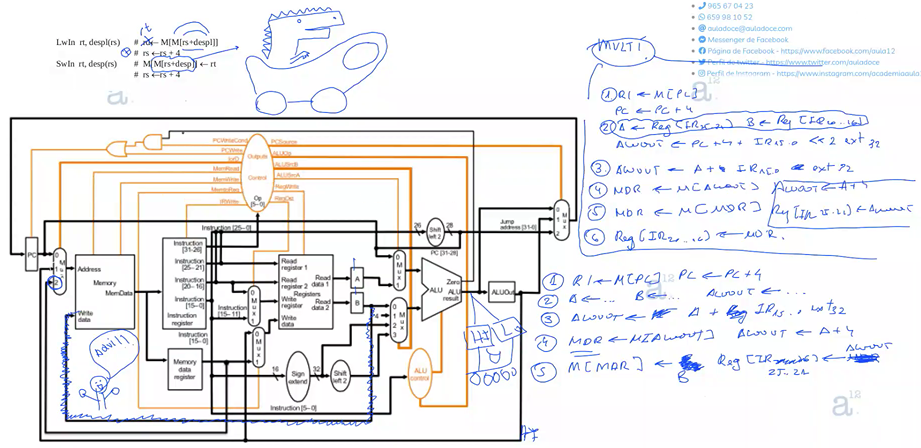 LwIn rt, despl(rs) # rs← M[M[rs+despl]]
rt
# rs ←rs + 4
SwIn rt, desp(rs) # M[M[rs+desp]] ← rt
# rs ←rs + 4
a12
965 67 04 23
659 98 10 52
auladoce@auladoce.com
Messenger de Facebook
Página de Facebook - https://www.facebook.com/aula12
Perfil de twitter - https://www.twitter.com/auladoce
Perfil de Instagram - https://www.instagram.com/academiaaula12
MULTI
① RI ← M[PC]
PC ← PC + 4
② A ← Reg [IR25..21] B ← Reg [IR20..16]
ALUOUT ← PC + 4 + IR15..0 << 2 ext 32
③ ALUOUT ← A + IR15..0 ext 32
④ MDR ← M[ALUOUT] ALUOUT ← A + 4
⑤ MDR ← M[MDR] Reg [IR 25..21] ← ALUOUT
⑥ Reg [IR20..16] ← MDR
① RI ← M[PC] PC ← PC + 4
② A ← ... B ← ... ALUOUT ← ...
③ ALUOUT ← A + IR15..0 ext 32
④ MDR ← M[ALUOUT] ALUOUT ← A + 4
⑤ M[MDR] ← B Reg [IR 25..21] ← ALUOUT
PCWriteCond
PCWrite
IorD
MemRead
MemWrite
MemtoReg
IRWrite
Outputs
Control
Op
[5–0]
PCSource
ALUOp
ALUSrcB
ALUSrcA
RegWrite
RegDst
PC
0
M
u
x
1
2
Address
Memory
MemData
Write
data
Instruction
[31-26]
Instruction
[25–21]
Instruction
[20–16]
Instruction
[15–0]
Instruction
register
Instruction [25–0]
Instruction
[15–11]
Instruction
[15–0]
Memory
data
register
0
M
u
x
1
0
M
u
x
1
Read
register 1
Read
register 2
Registers
Write
register
Write
data
Read
data 1
Read
data 2
A
B
4
16
Sign
extend
32
Shift
left 2
0
M
u
x
1
0
1
2
3
M
u
x
26
Shift
left 2
28
Jump
address [31-0]
PC [31-28]
Zero
ALU
ALU
result
ALUOut
0
1
2
M
u
x
ALU
control
Instruction [5–0]
Advil!!
HI
a12